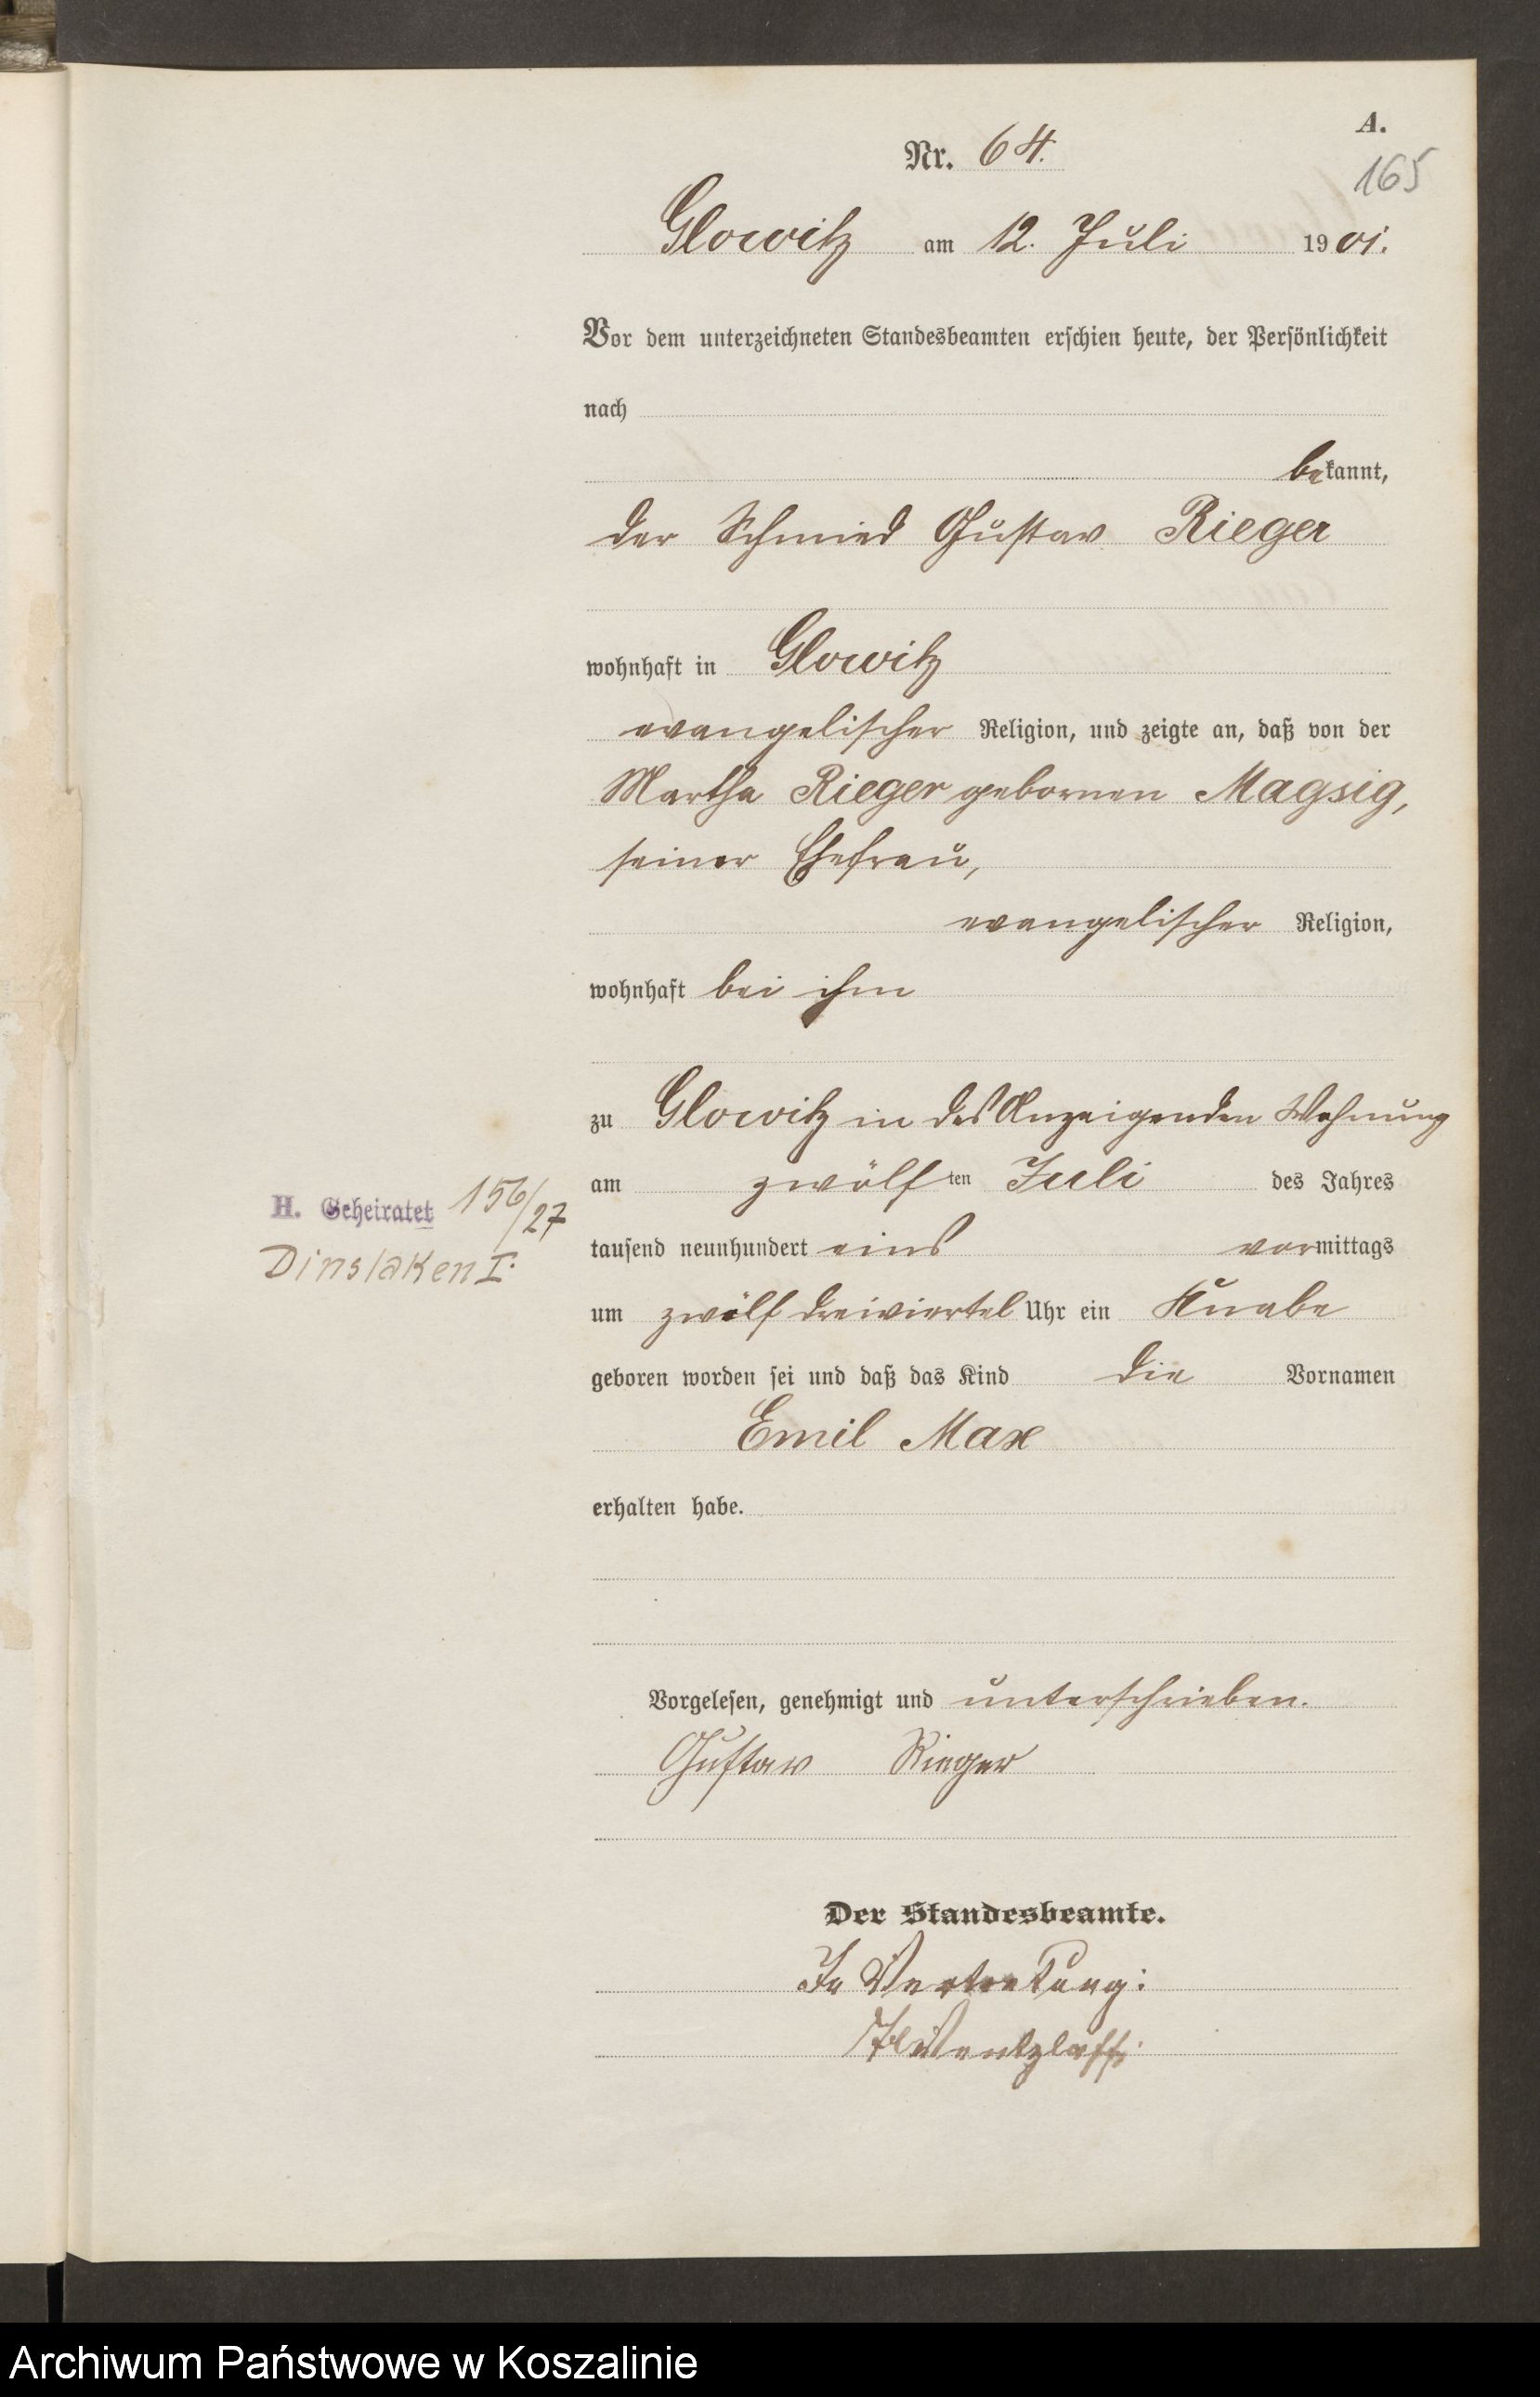 A.
Nr. 64.
165
Glowitz am 12. Juli 1901.
Vor dem unterzeichneten Standesbeamten erschien heute, der Persönlichkeit
nach
bekannt,
der Schmied Gustav Rieger
wohnhaft in Glowitz
evangelischer Religion, und zeigte an, daß von der
Martha Rieger gebornen Magsig,
seiner Ehefrau,
evangelischer Religion,
wohnhaft bei ihm
zu Glowitz in des Anzeigenden Wohnung
am zwölften Juli des Jahres
tausend neunhundert eins vormittags
um zwölf dreiviertel Uhr ein Knabe
geboren worden sei und daß das Kind die Vornamen
Emil Max
erhalten habe.
H. Geheiratet 156/27
Dinslaken I.
Vorgelesen, genehmigt und unterschrieben.
Gustav Rieger
Der Standesbeamte.
In Vertretung:
Wentzlaff.
Archiwum Państwowe w Koszalinie